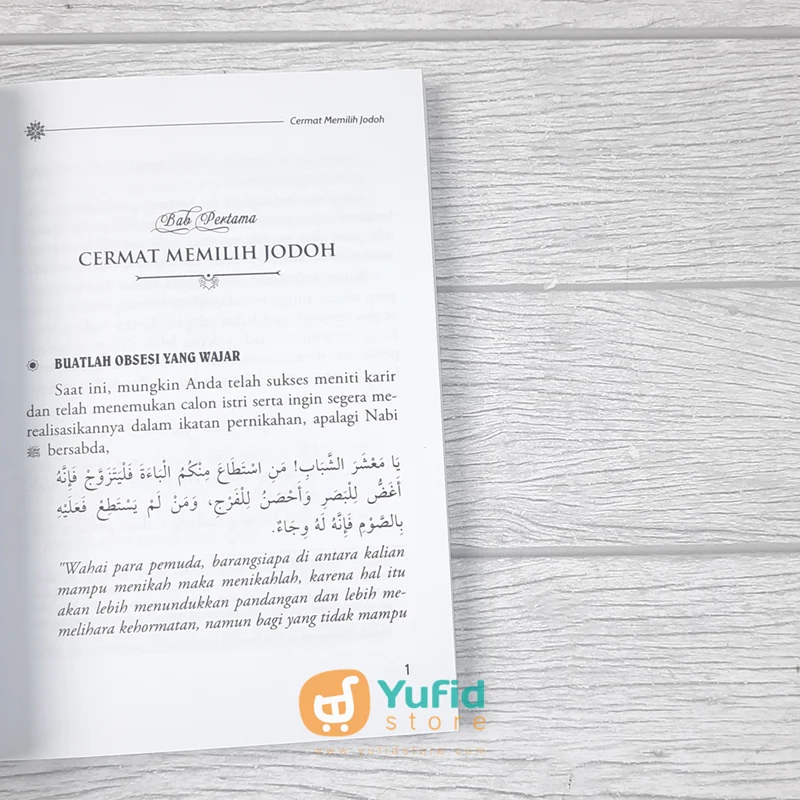 Cermat Memilih Jodoh
Bab Pertama
CERMAT MEMILIH JODOH
BUATLAH OBSESI YANG WAJAR
Saat ini, mungkin Anda telah sukses meniti karir
dan telah menemukan calon istri serta ingin segera me-
realisasikannya dalam ikatan pernikahan, apalagi Nabi
ﷺ bersabda,
يَا مَعْشَرَ الشَّبَابِ! مَنِ اسْتَطَاعَ مِنْكُمُ الْبَاءَةَ فَلْيَتَزَوَّجْ فَإِنَّهُ
أَغَضُّ لِلْبَصَرِ وَأَحْصَنُ لِلْفَرْجِ، وَمَنْ لَمْ يَسْتَطِعْ فَعَلَيْهِ
بِالصَّوْمِ فَإِنَّهُ لَهُ وِجَاءٌ.
"Wahai para pemuda, barangsiapa di antara kalian
mampu menikah maka menikahlah, karena hal itu
akan lebih menundukkan pandangan dan lebih me-
melihara kehormatan, namun bagi yang tidak mampu
1
Yufid
store
www.yufidstore.com